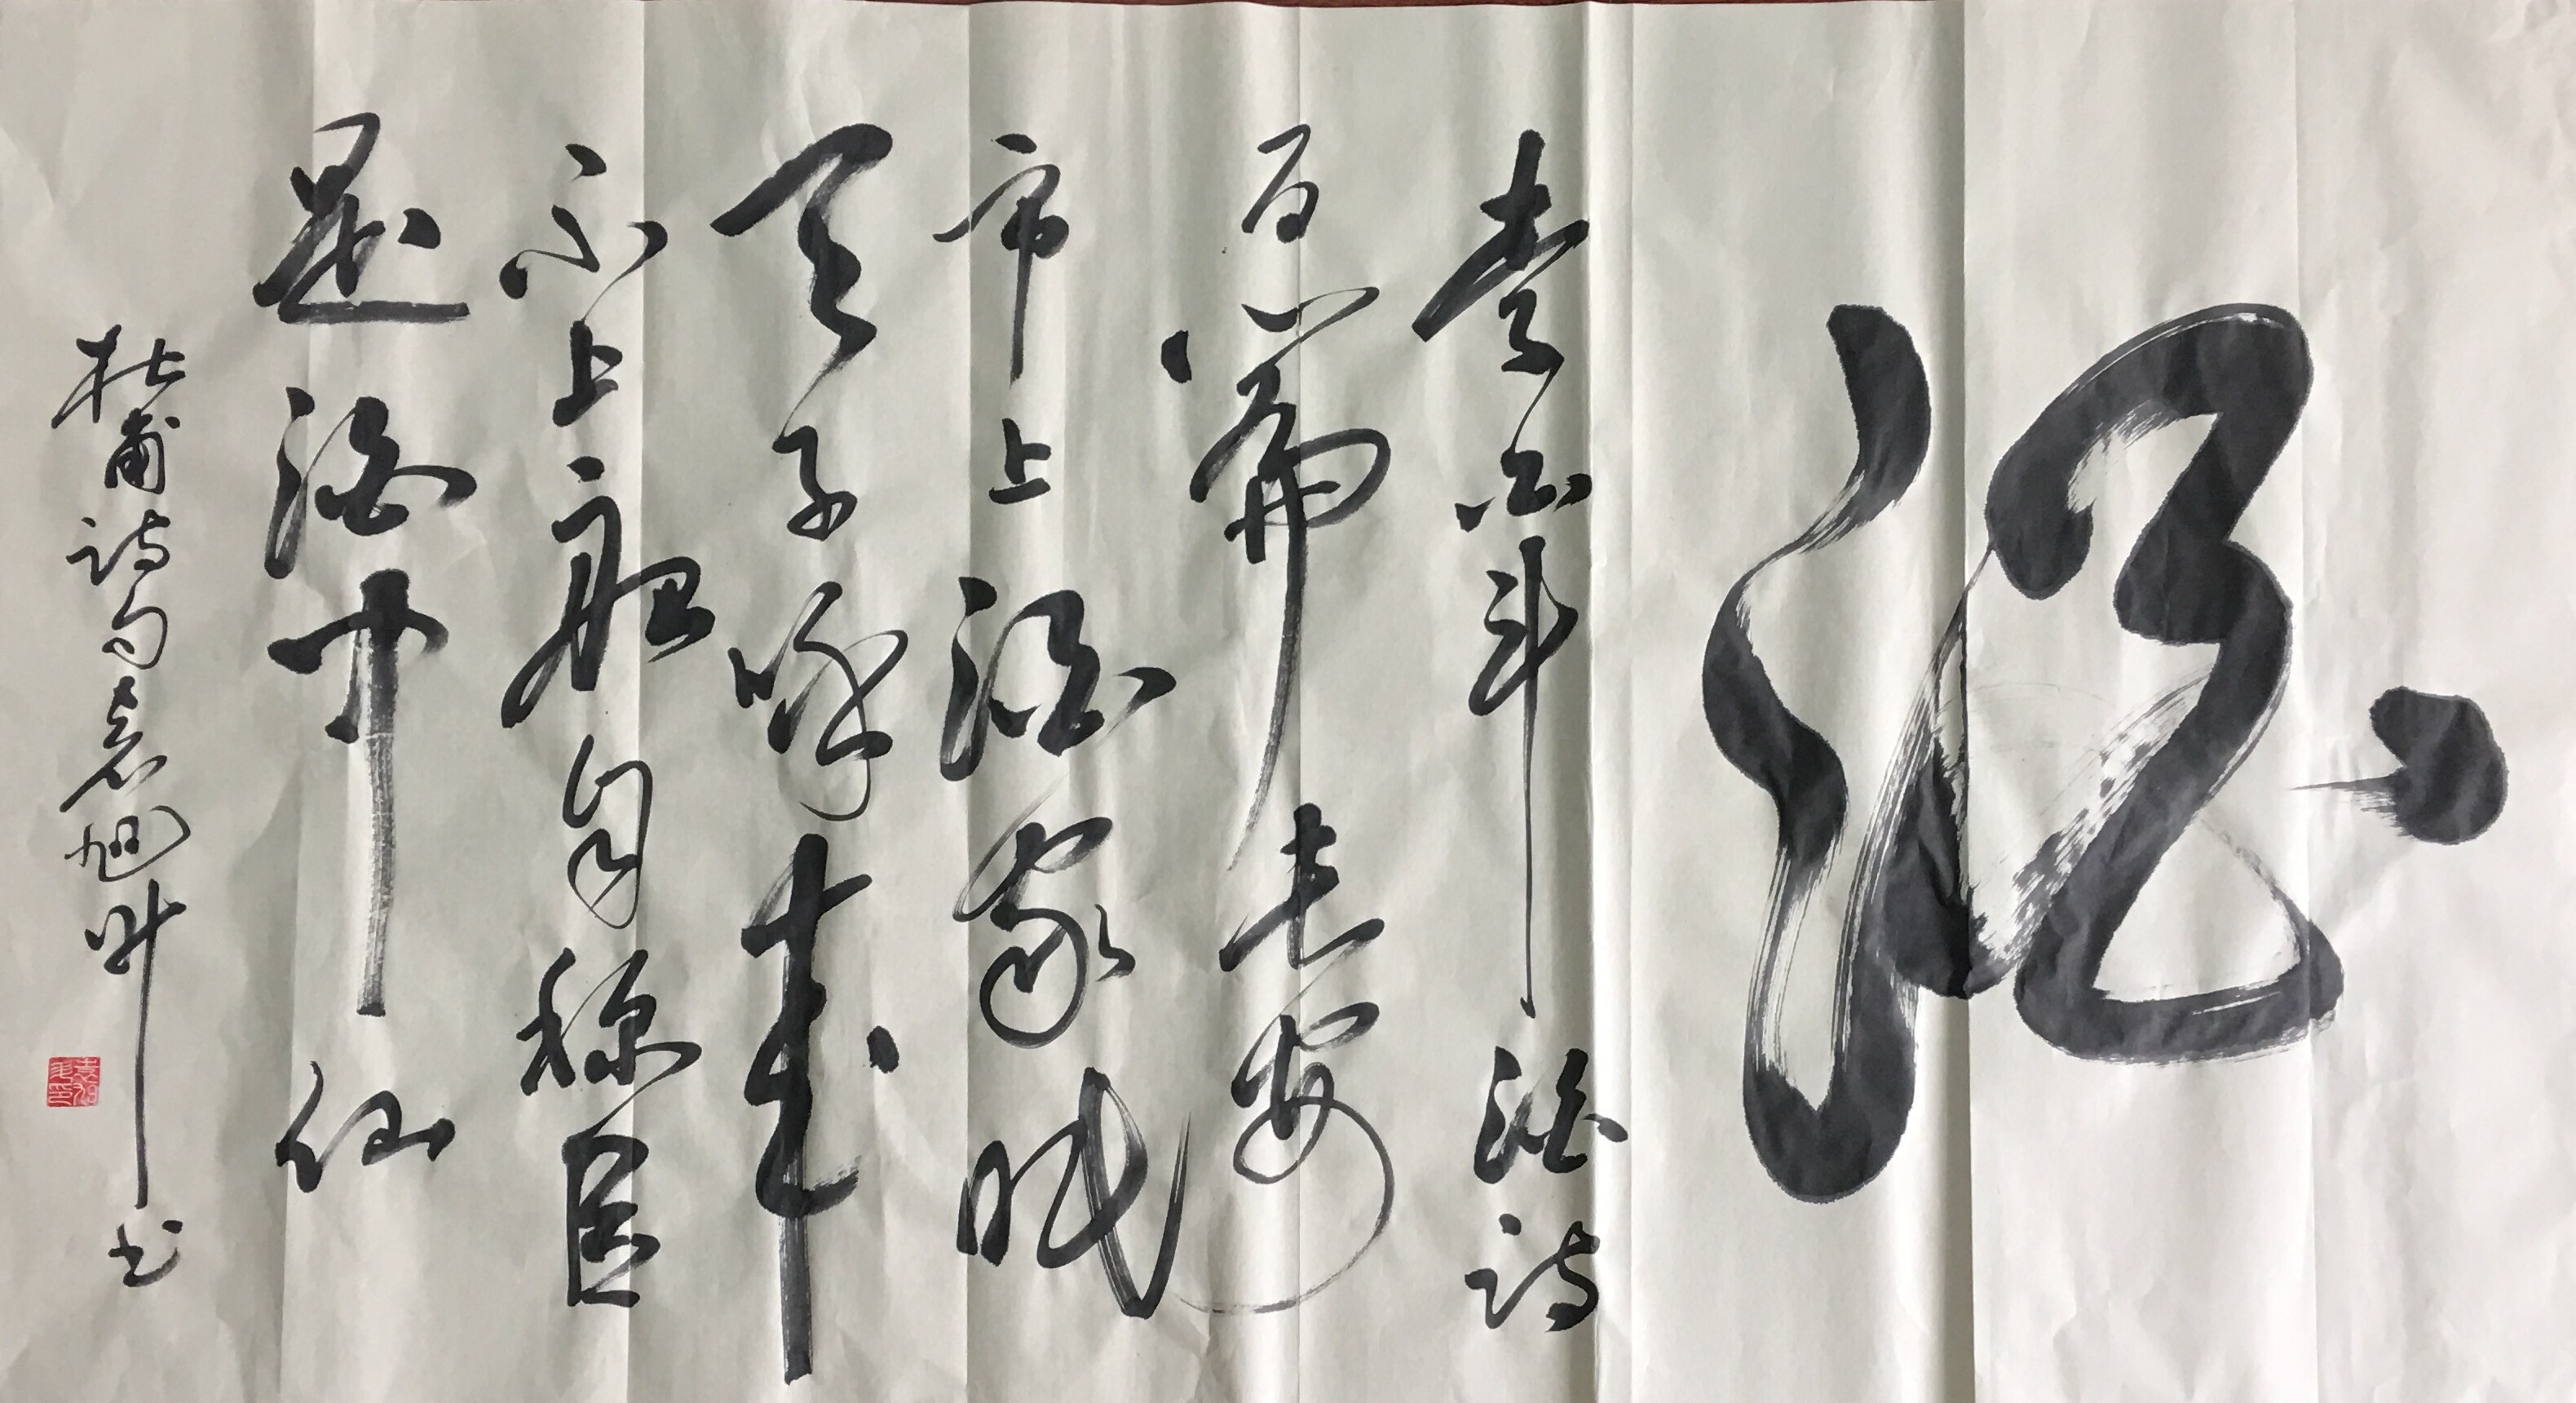 李白斗酒诗
百篇长安
市上酒家眠
天子呼来
不上船自称臣
是酒中仙
杜甫诗句袁旭升书